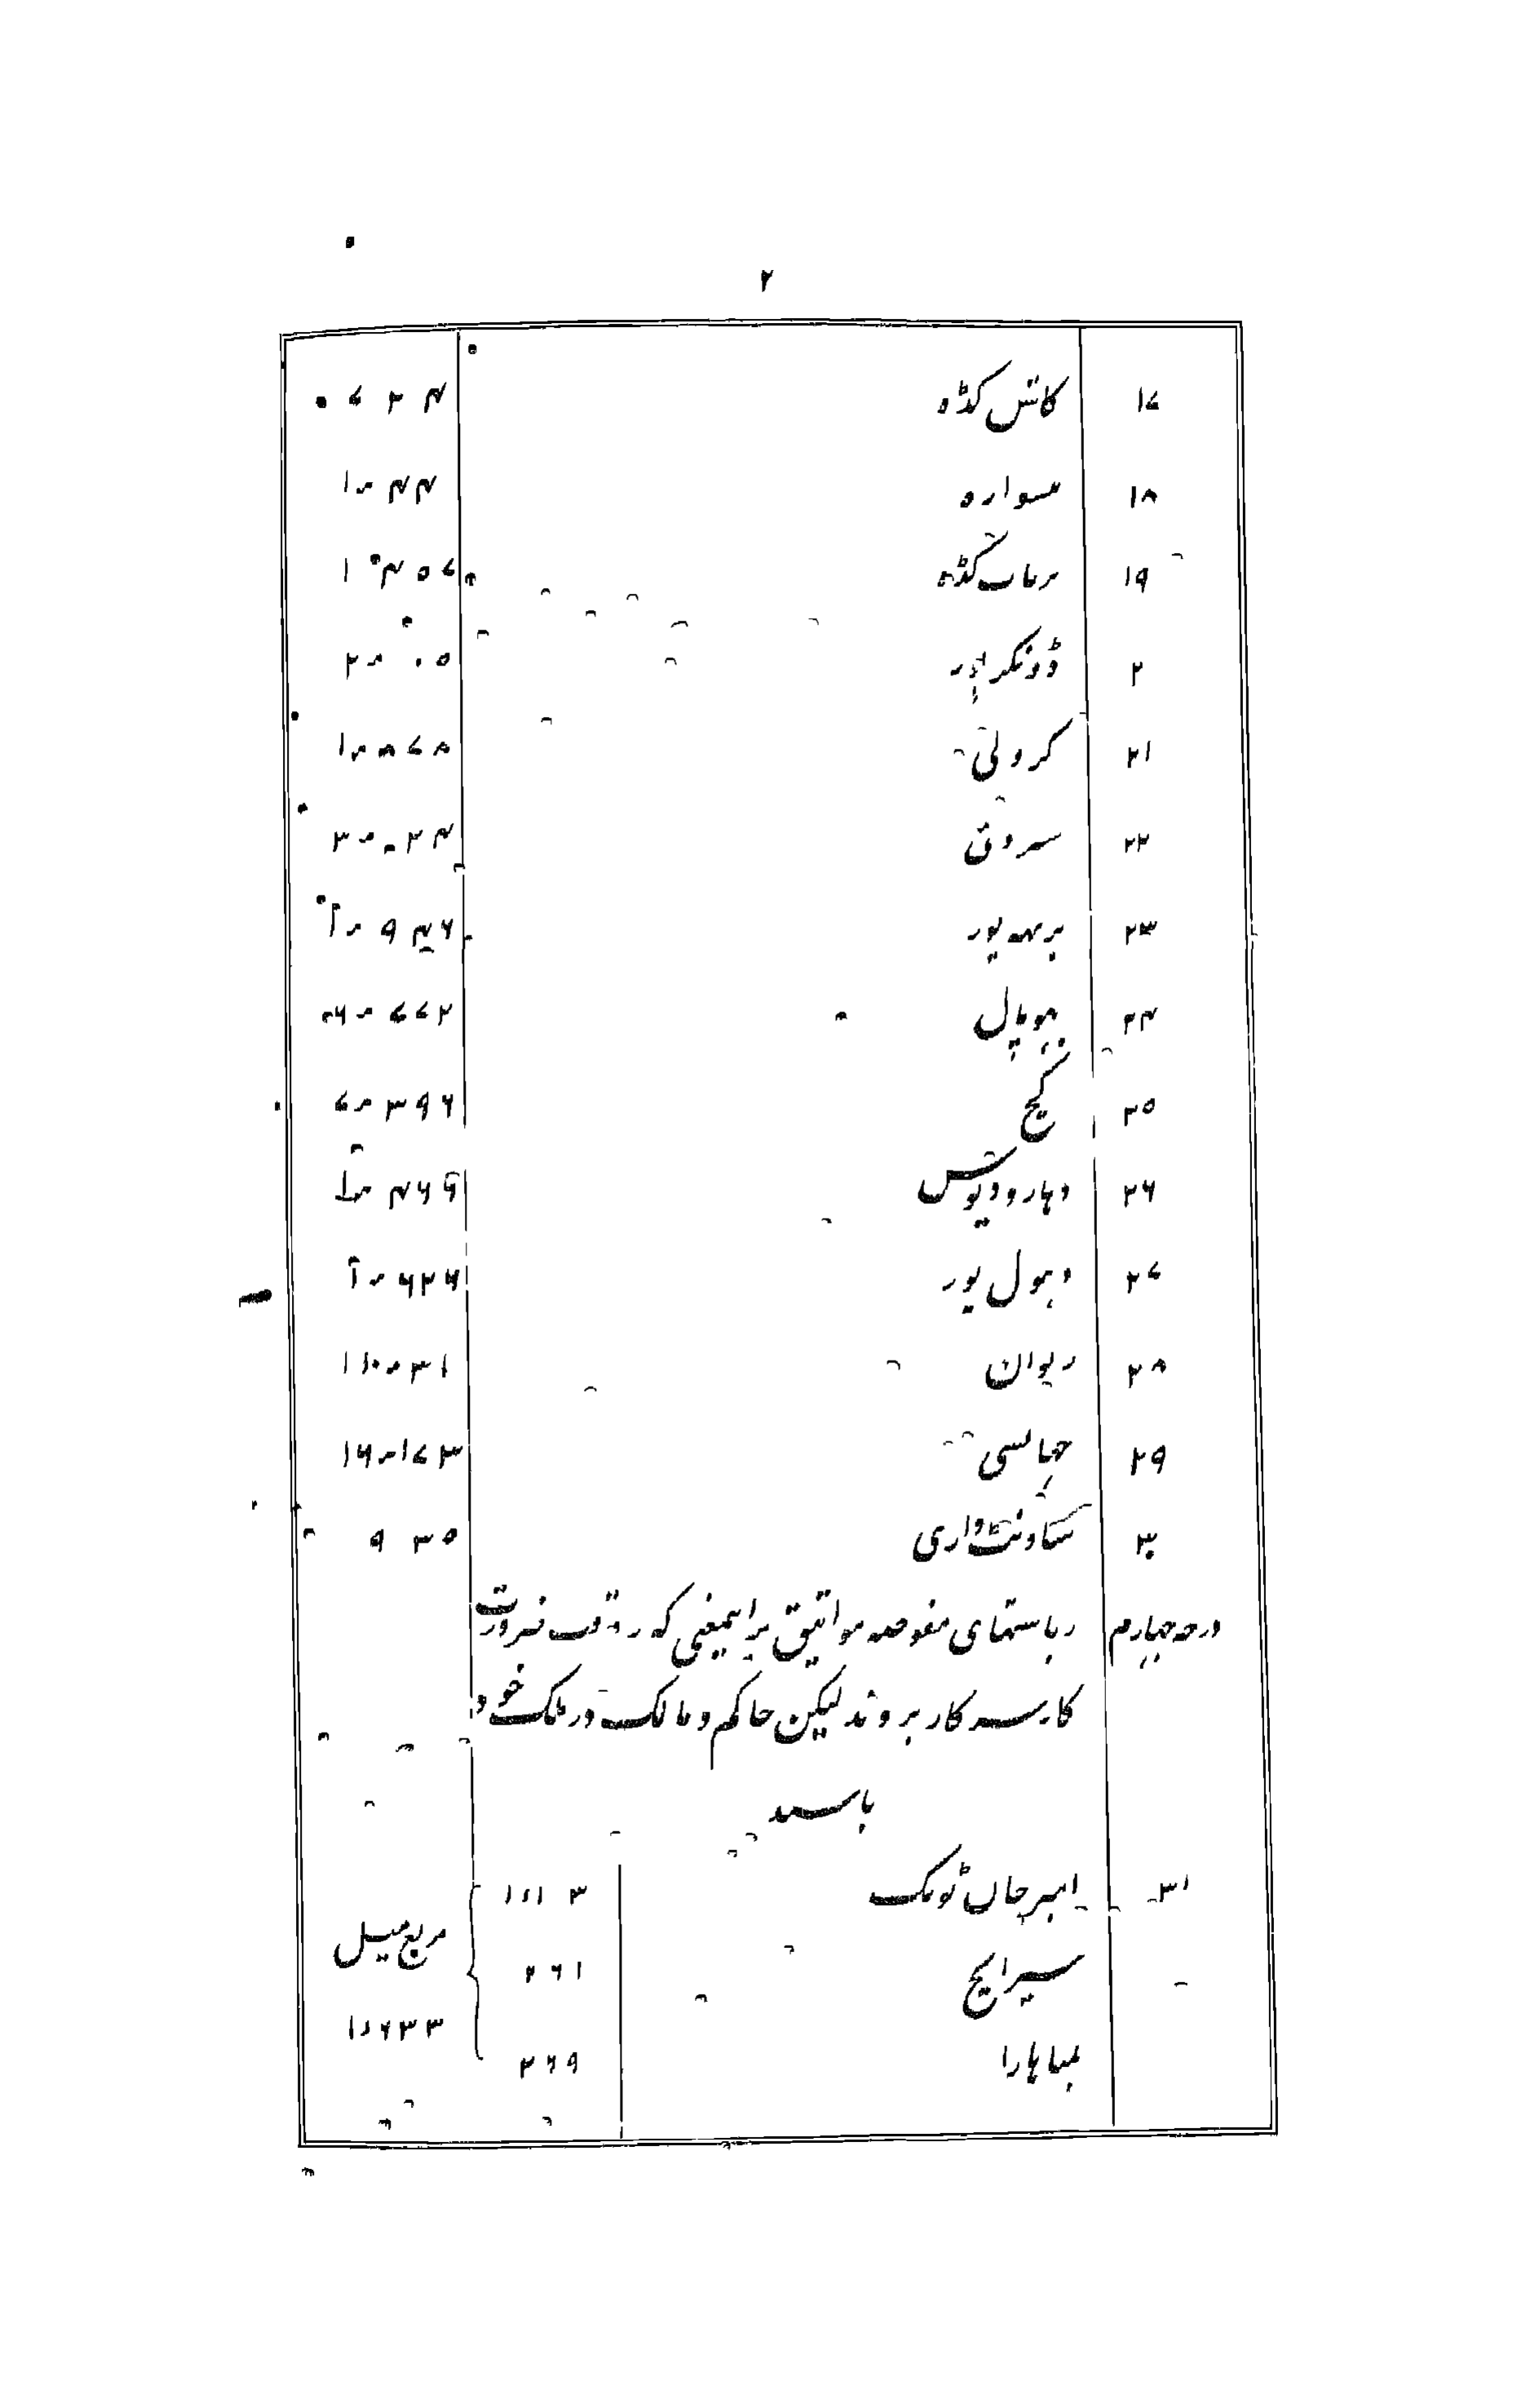 ۲
۱۷ کاش گڈه ۷۲۴
۱۸ بسواره ۱٫۴۴
۱۹ گڈه ۱٫۴۵۷
۲ ڈونگرپور ۲٫۰۰۵
۲۱ کرولی ۱٫۸۷۸
۲۲ سروئی ۳٫۰۲۴
۲۳ ۱٫۹۴۶
۲۴ بهوپال ۶٫۷۷۲
۲۵ کچ ۷٫۳۹۶
۲۶ دهار و دیوس ۱٫۴۶۹
۲۷ دهول پور ۱٫۶۲۶
۲۸ ریوان ۱۰٫۳۱
۲۹ جهانسی ۱۶٫۱۷۳
۳۰ ساونت واری ۹۳۵
درجه چهارم ریاستهای مفوضه مواثیق براینمعنی که بوقت ضرورت
کار سرکار بروند لیکن حاکم و مالک در ملک خود
باشند
۳۱ امیرخان ٹونک ۱٫۱۰۳
سیرانج ۲۶۱
نمباهارا ۲۶۹
مربع میل
۱٫۶۳۳